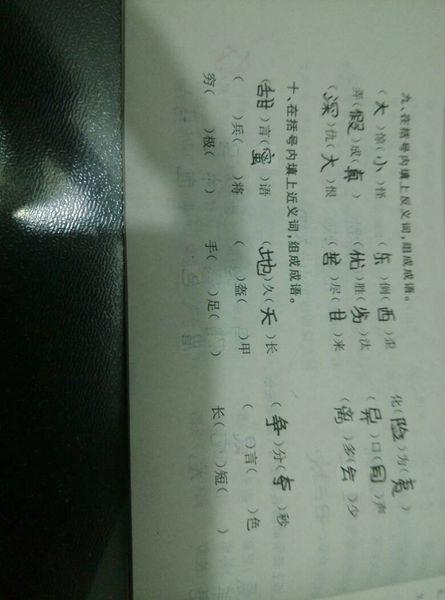 九、在括号内填上反义词,组成成语。
(大)惊(小)怪 (东)倒(西)歪 化(险)为(夷)
弄(假)成(真) (优)胜(劣)汰 (异)口(同)声
(深)仇(大)恨 (苦)尽(甘)来 (离)多(会)少
十、在括号内填上近义词,组成成语。
(甜)言(蜜)语 (地)久(天)长 (争)分(夺)秒
( )兵( )将 ( )盔( )甲 ( )言( )色
穷( )极( ) 手( )足( ) 长( )短( )